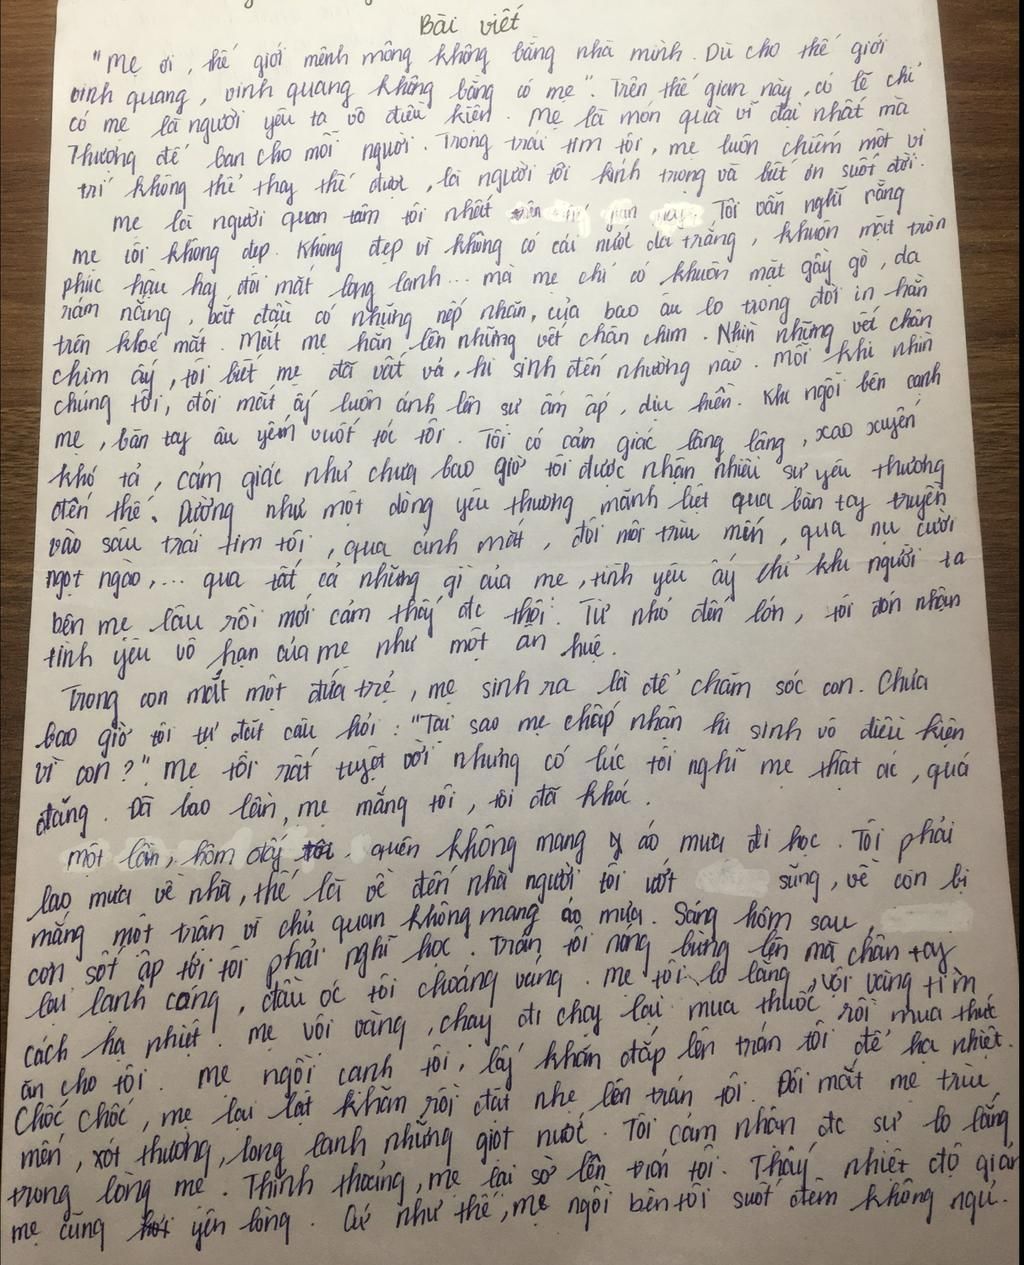 Bài viết
"Mẹ ơi, thế giới mênh mông không bằng nhà mình. Dù cho thế giới
vinh quang, vinh quang không bằng có mẹ". Trên thế gian này, có lẽ chỉ
có mẹ là người yêu ta vô điều kiện. Mẹ là món quà vĩ đại nhất mà
Thượng đế ban cho mỗi người. Trong trái tim tôi, mẹ luôn chiếm một vị
trí không thể thay thế được, là người tôi kính trọng và biết ơn suốt đời.
Mẹ là người quan tâm tôi nhất Tôi vẫn nghĩ rằng
mẹ tôi không đẹp. Không đẹp vì không có cái nước da trắng, khuôn mặt tròn
phúc hậu hay đôi mắt long lanh... mà mẹ chỉ có khuôn mặt gầy gò, da
rám nắng, bắt đầu có những nếp nhăn, của bao âu lo trong đời in hằn
trên khoé mắt. Mắt mẹ hằn lên những vết chân chim. Nhìn những vết chân
chim ấy, tôi biết mẹ đã vất vả, hi sinh đến nhường nào. Mỗi khi nhìn
chúng tôi, đôi mắt ấy luôn ánh lên sự ấm áp, dịu hiền. Khi ngồi bên cạnh
mẹ, bàn tay âu yếm vuốt tóc tôi. Tôi có cảm giác lâng lâng, xao xuyến
khó tả, cảm giác như chưa bao giờ tôi được nhận nhiều sự yêu thương
đến thế. Dường như một dòng yêu thương mãnh liệt qua bàn tay truyền
vào sâu trái tim tôi, qua ánh mắt, đôi môi trìu mến, qua nụ cười
ngọt ngào,... qua tất cả những gì của mẹ, tình yêu ấy chỉ khi người ta
bên mẹ lâu rồi mới cảm thấy đc thôi. Từ nhỏ đến lớn, tôi đón nhận
tình yêu vô hạn của mẹ như một ân huệ.
Trong con mắt một đứa trẻ, mẹ sinh ra là để chăm sóc con. Chưa
bao giờ tôi tự đặt câu hỏi: "Tại sao mẹ chấp nhận hi sinh vô điều kiện
vì con?". Mẹ tôi rất tuyệt vời nhưng có lúc tôi nghĩ mẹ thật ác, quá
đáng. Đã bao lần, mẹ mắng tôi, tôi đã khóc.
Một lần, hôm đấy quên không mang áo mưa đi học. Tôi phải
lao mưa về nhà, thế là về đến nhà người tôi ướt sũng, về còn bị
mắng một trận vì chủ quan không mang áo mưa. Sáng hôm sau,
cơn sốt ập tới tôi phải nghỉ học. Trán tôi nóng bừng lên mà chân tay
lại lạnh cóng, đầu óc tôi choáng váng. Mẹ tôi lo lắng, vội vàng tìm
cách hạ nhiệt. Mẹ vội vàng, chạy đi chạy lại mua thuốc rồi mua thức
ăn cho tôi. Mẹ ngồi canh tôi, lấy khăn đắp lên trán tôi để hạ nhiệt.
Chốc chốc, mẹ lại lật khăn rồi đặt nhẹ lên trán tôi. Đôi mắt mẹ trìu
mến, xót thương, long lanh những giọt nước. Tôi cảm nhận đc sự lo lắng
trong lòng mẹ. Thỉnh thoảng, mẹ lại sờ lên trán tôi. Thấy nhiệt độ giảm
mẹ cũng yên lòng. Cứ như thế, mẹ ngồi bên tôi suốt đêm không ngủ.